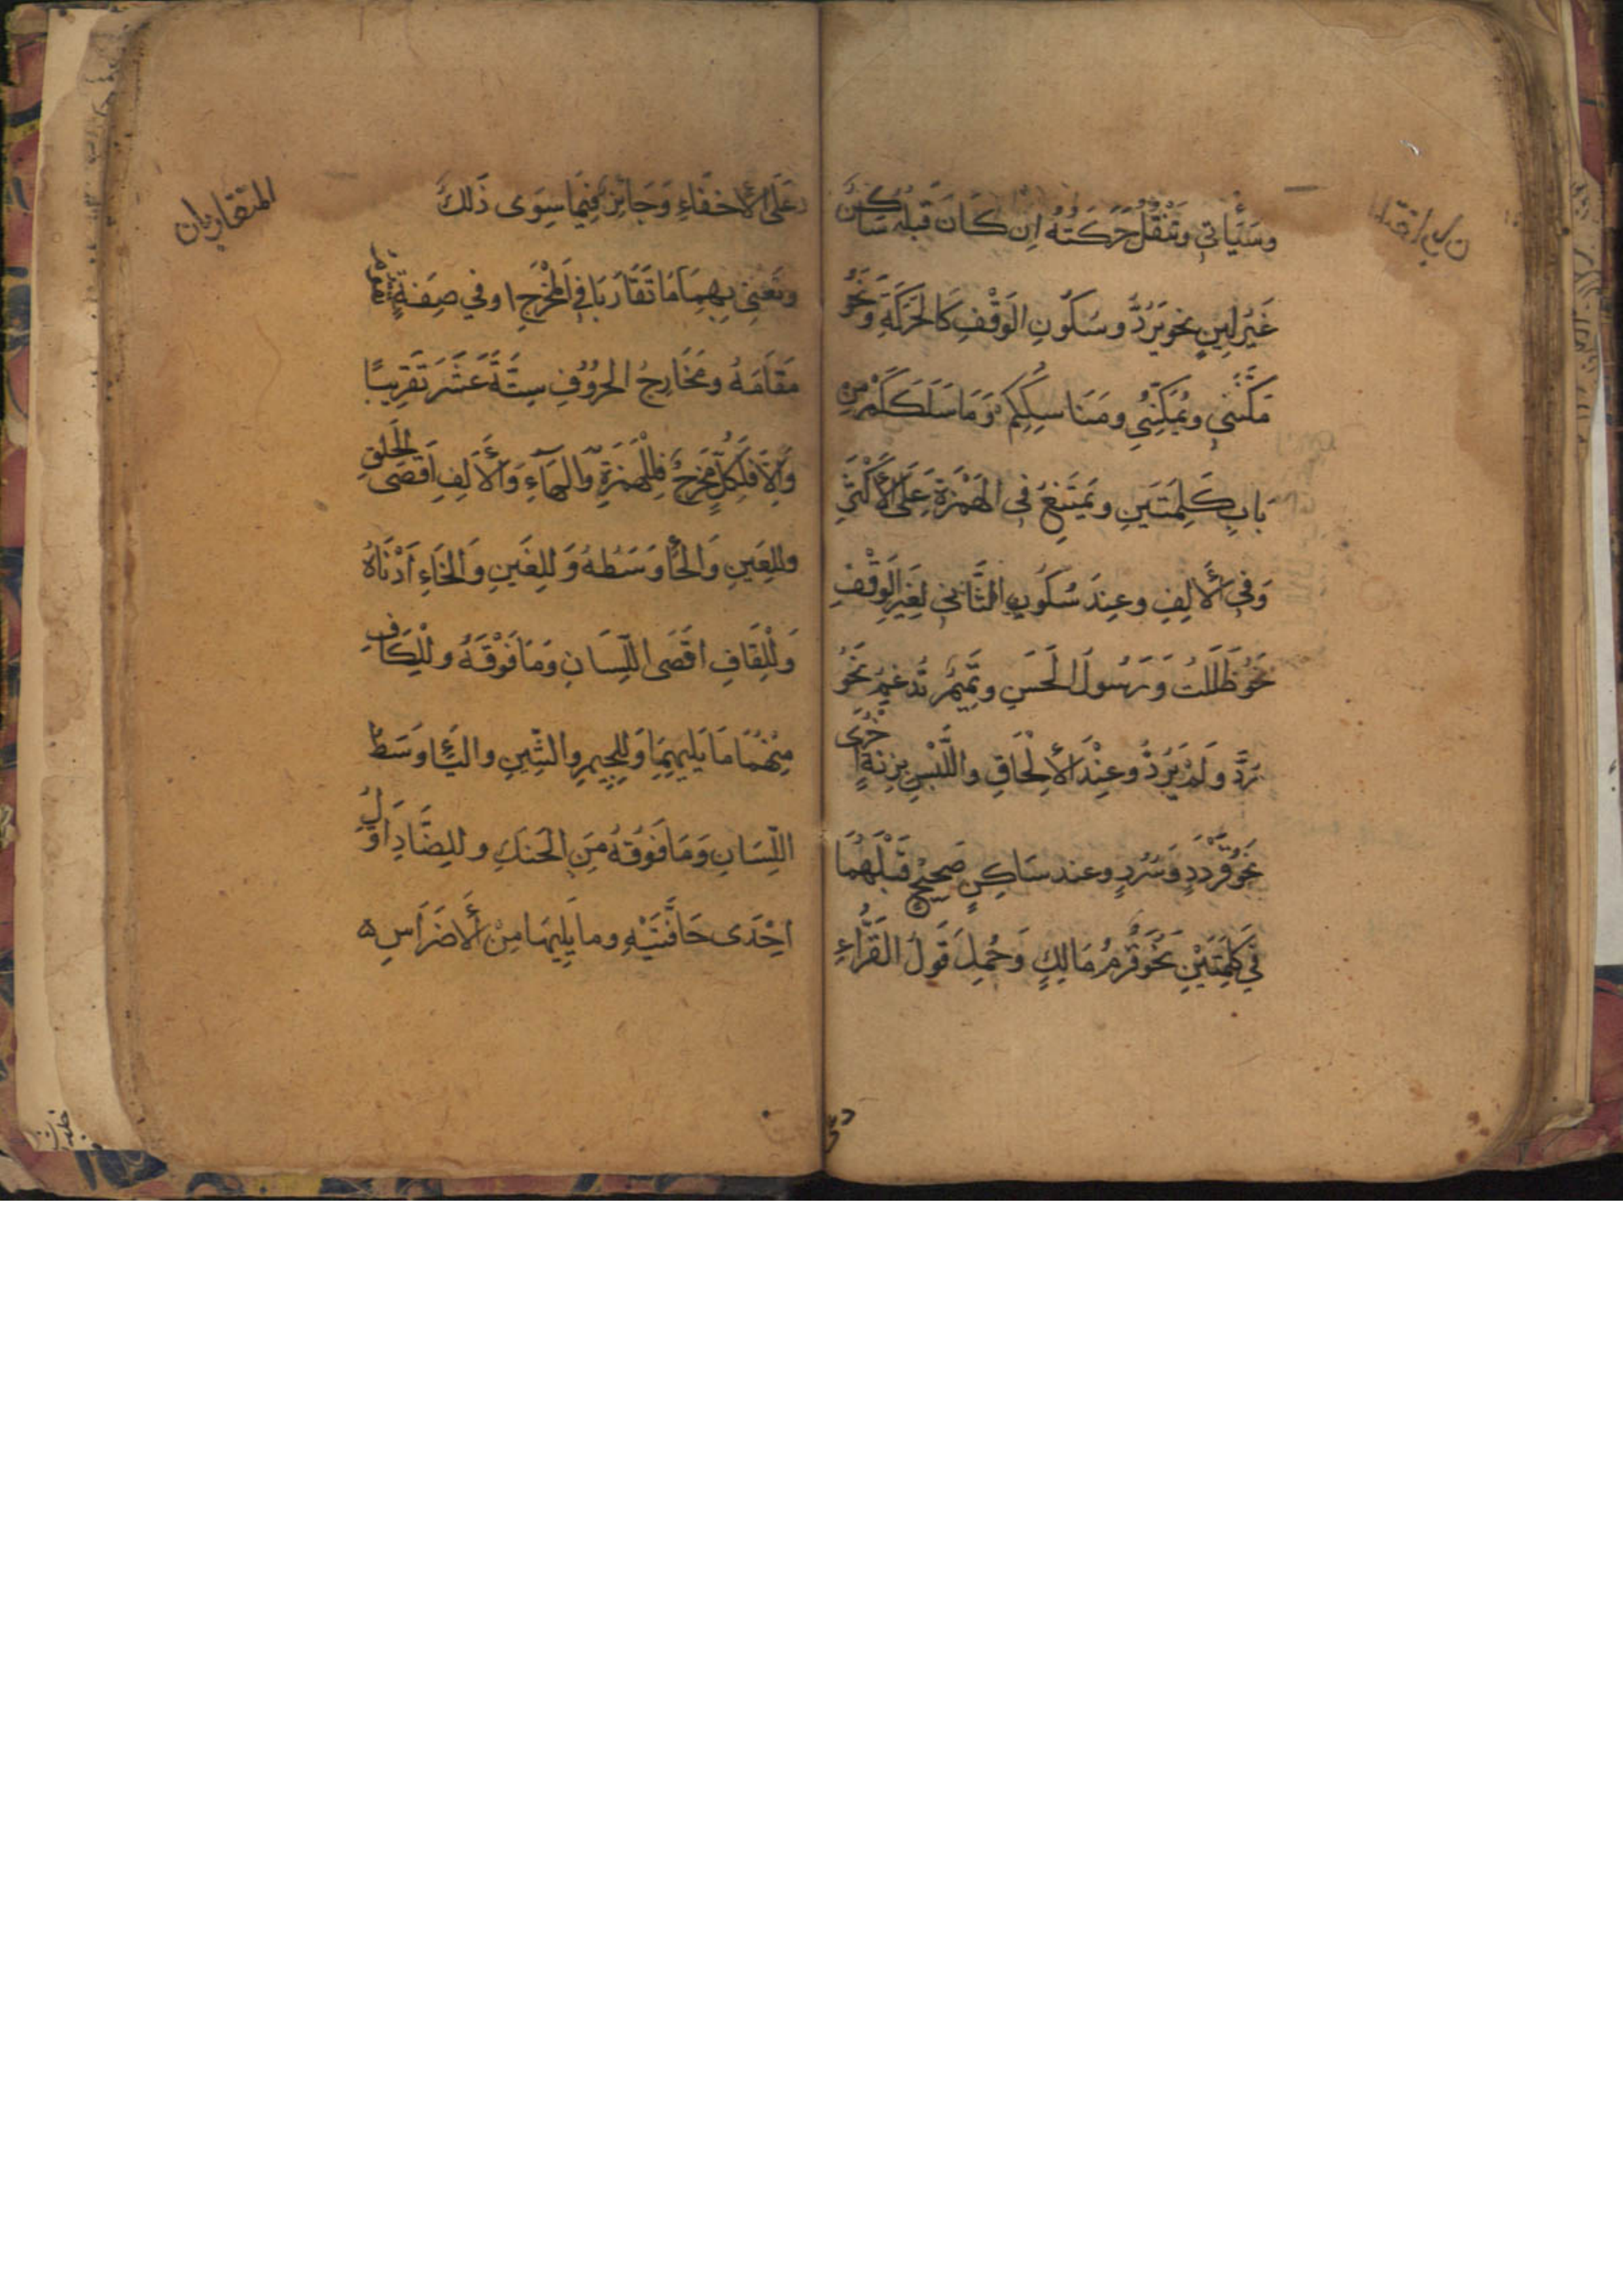 وسَيَأتي وتُنْقَلُ حَرَكَتُهُ اِن كَانَ قَبلَهُ سَاكِنٌ
غَيْرُ لِينٍ نحو يَرُدُّ وسُكُونِ الوَقْفِ كَالحَرَكَةِ وَنَحْوُ
مَكَّنَنِي ويُمَكِّنُنِي ومَنَاسِكِكُمْ وَمَا سَلَكَكُمْ مِن
بَابِ كَلِمَتَينِ ويَمْتَنِعُ في الهَمْزَةِ عَلَى الأَكْثَرِ
وَفي الأَلِفِ وعِندَ سُكُونِ الثَّانِي لِغَيرِ الوَقْفِ
نَحْوُ ظَلِلْتُ وَرَسُولُ الحَسَنِ وتَمِيمٌ تُدغِمُ نَحْوُ
رُدَّ ولَمْ يَرُدَّ وعِنْدَ الأِلْحَاقِ واللَّبْسِ بِزِنَةٍ اُخْرَى
نَحْوُ قَرْدَدٍ وَسُرُرٍ وعند سَاكِنٍ صَحِيحٍ قَبْلَهُمَا
فِي كَلِمَتَيْنِ نَحْوُ قَرْمُ مَالِكٍ وَحُمِلَ قَولُ القُرَّاءِ
عَلَى الأِخفَاءِ وَجَائِزٌ فِيمَا سِوَى ذَلِكَ
المتقاربان
ونَعْنِي بِهِمَا مَا تَقَارَبَا فِي المَخْرَجِ اوفي صِفَةٍ تقوم
مَقَامَهُ ومَخَارِجُ الحرُوُفِ سِتَّةَ عَشَرَ تَقْرِيبًا
وَاِلاَّ فَلِكُلٍّ مَخْرَجٌ فَلِلْهَمْزَةِ وَالهَاءِ وَالأَلِفِ اَقْصَى الحَلقِ
وللِعَينِ وَالحَاءِ وَسَطُهُ وَللِغَينِ وَالخَاءِ اَدْنَاهُ
وَلِلْقَافِ اقْصَى اللِّسَانِ وَمَا فَوْقَهُ وللْكَافِ
مِنْهُمَا مَا يَليهِمَا وَلِلجِيمِ والشِّينِ واليَاءِ وَسَطُ
اللِّسَانِ وَمَا فَوْقَهُ مِنَ الحَنَكِ وللِضَّادِ اَوَّلُ
اِحْدَى حَافَّتَيْهِ وما يَلِيهَا مِنَ الأَضرَاسِ ه